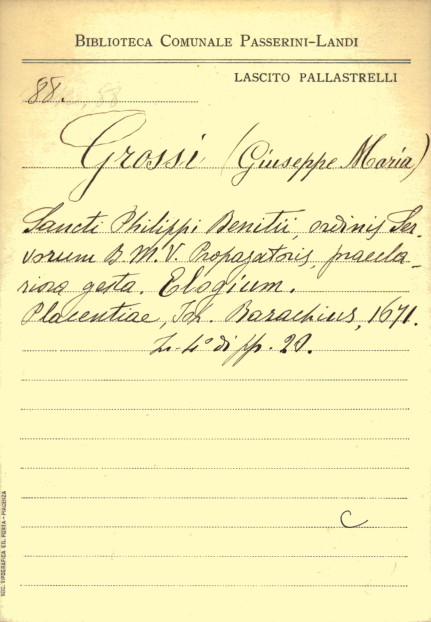 BIBLIOTECA COMUNALE PASSERINI-LANDI
LASCITO PALLASTRELLI
88.
Grossi (Giuseppe Maria)
Sancti Philippi Benitii, ordinis Ser-
vorum B. M. V. Propagatoris, praecla-
riora gesta. Elogium.
Placentiae, Joh. Bazachius, 1671.
In-4° di pp. 20.
C
SOC. TIPOGRAFICA ED. PORTA - PIACENZA